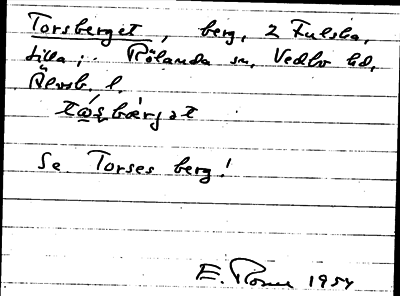 Torsberget, berg, 2 Fulsba,
lilla; Rölanda sn, Vedbo hd,
Älvsb. l.
tå̀ʂbærgət
Se Torses berg!
E. 1954